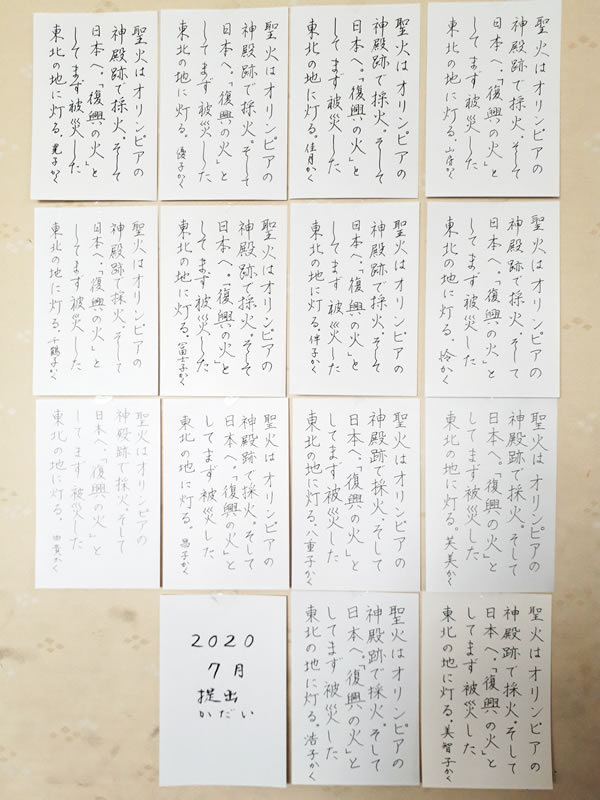 聖火はオリンピアの
神殿跡で採火。そして
日本へ。「復興の火」と
してまず被災した
東北の地に灯る。かく
聖火はオリンピアの
神殿跡で採火。そして
日本へ。「復興の火」と
してまず被災した
東北の地に灯る。佳月かく
聖火はオリンピアの
神殿跡で採火。そして
日本へ。「復興の火」と
してまず被災した
東北の地に灯る。優子かく
聖火はオリンピアの
神殿跡で採火。そして
日本へ。「復興の火」と
してまず被災した
東北の地に灯る。光子かく
聖火はオリンピアの
神殿跡で採火。そして
日本へ。「復興の火」と
してまず被災した
東北の地に灯る。怜かく
聖火はオリンピアの
神殿跡で採火。そして
日本へ。「復興の火」と
してまず被災した
東北の地に灯る。伴子かく
聖火はオリンピアの
神殿跡で採火。そして
日本へ。「復興の火」と
してまず被災した
東北の地に灯る。冨士子かく
聖火はオリンピアの
神殿跡で採火。そして
日本へ。「復興の火」と
してまず被災した
東北の地に灯る。千鶴子かく
聖火はオリンピアの
神殿跡で採火。そして
日本へ。「復興の火」と
してまず被災した
東北の地に灯る。芙美かく
聖火はオリンピアの
神殿跡で採火。そして
日本へ。「復興の火」と
してまず被災した
東北の地に灯る。八重子かく
聖火はオリンピアの
神殿跡で採火。そして
日本へ。「復興の火」と
してまず被災した
東北の地に灯る。昌子かく
聖火はオリンピアの
神殿跡で採火。そして
日本へ。「復興の火」と
してまず被災した
東北の地に灯る。由貴かく
聖火はオリンピアの
神殿跡で採火。そして
日本へ。「復興の火」と
してまず被災した
東北の地に灯る。美智子かく
聖火はオリンピアの
神殿跡で採火。そして
日本へ。「復興の火」と
してまず被災した
東北の地に灯る。浩子かく
2020
7月
提出
かだい